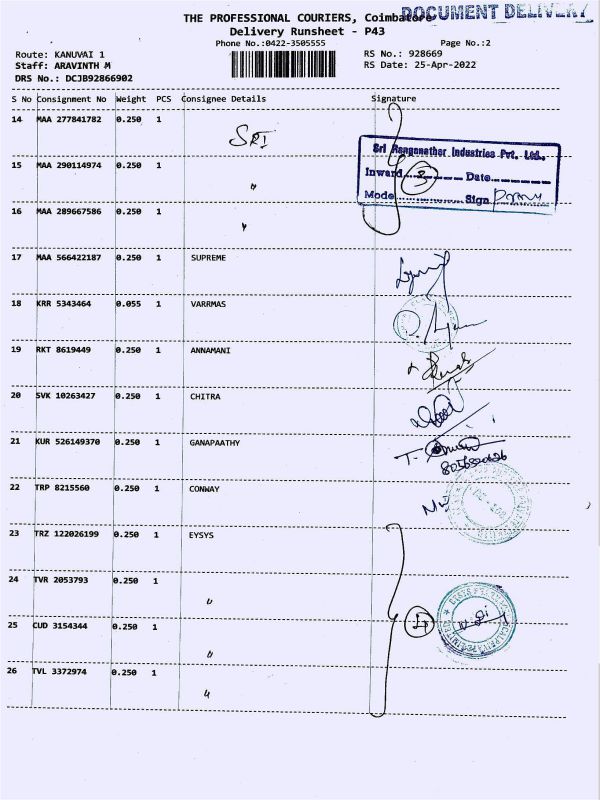 THE PROFESSIONAL COURIERS, Coimbatore
DOCUMENT DELIVERY
Delivery Runsheet - P43
Phone No.:0422-3505555
Page No.:2
Route: KANUVAI 1
RS No.: 928669
Staff: ARAVINTH M
RS Date: 25-Apr-2022
DRS No.: DCJB92866902
S No Consignment No Weight PCS Consignee Details Signature
14 MAA 277841782 0.250 1 SRI
Sri Ranganathar Industries Pvt. Ltd.,
15 MAA 290114974 0.250 1 "
Inward 3 Date
Mode Sign
16 MAA 289667586 0.250 1 "
17 MAA 566422187 0.250 1 SUPREME
18 KRR 5343464 0.055 1 VARRMAS
19 RKT 8619449 0.250 1 ANNAMANI
20 SVK 10263427 0.250 1 CHITRA
21 KUR 526149370 0.250 1 GANAPAATHY
22 TRP 8215560 0.250 1 CONWAY
23 TRZ 122026199 0.250 1 EYSYS
24 TVR 2053793 0.250 1 "
25 CUD 3154344 0.250 1 "
26 TVL 3372974 0.250 1 "